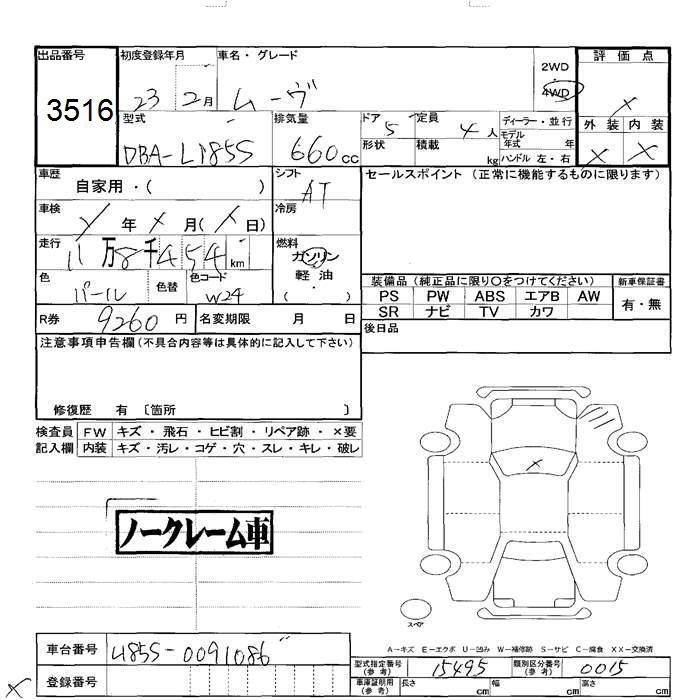 出品番号 初度登録年月 車名・グレード 2WD 評価点
3516 23 2月 ムーヴ 4WD ×
型式 排気量 ドア 定員 ディーラー・並行 外装 内装
DBA-L185S 660cc 5 4人 モデル年式 年 × ×
形状 積載 kg ハンドル 左・右
車歴 シフト セールスポイント(正常に機能するものに限ります)
自家用・( ) AT
車検 冷房
年 ×月(×日)
走行 燃料
11万8千454km ガソリン
色 色替 色コード 軽油
パール W24 ( )
装備品(純正品に限り○をつけてください) 新車保証書
PS PW ABS エアB AW 有・無
SR ナビ TV カワ
R券 9260円 名変期限 月 日 後日品
注意事項申告欄(不具合内容等は具体的に記入して下さい)
修復歴 有 〔箇所 〕
検査員 FW キズ・飛石・ヒビ割・リペア跡・×要
記入欄 内装 キズ・汚レ・コゲ・穴・スレ・キレ・破レ
×
ノークレーム車
スペア
A-キズ E-エクボ U-凹み W-補修跡 S-サビ C-腐食 XX-交換済
車台番号 L185S-0091086 型式指定番号(参考) 15495 類別区分番号(参考) 0015
× 登録番号 車庫証明用(参考) 長さ cm 幅 cm 高さ cm